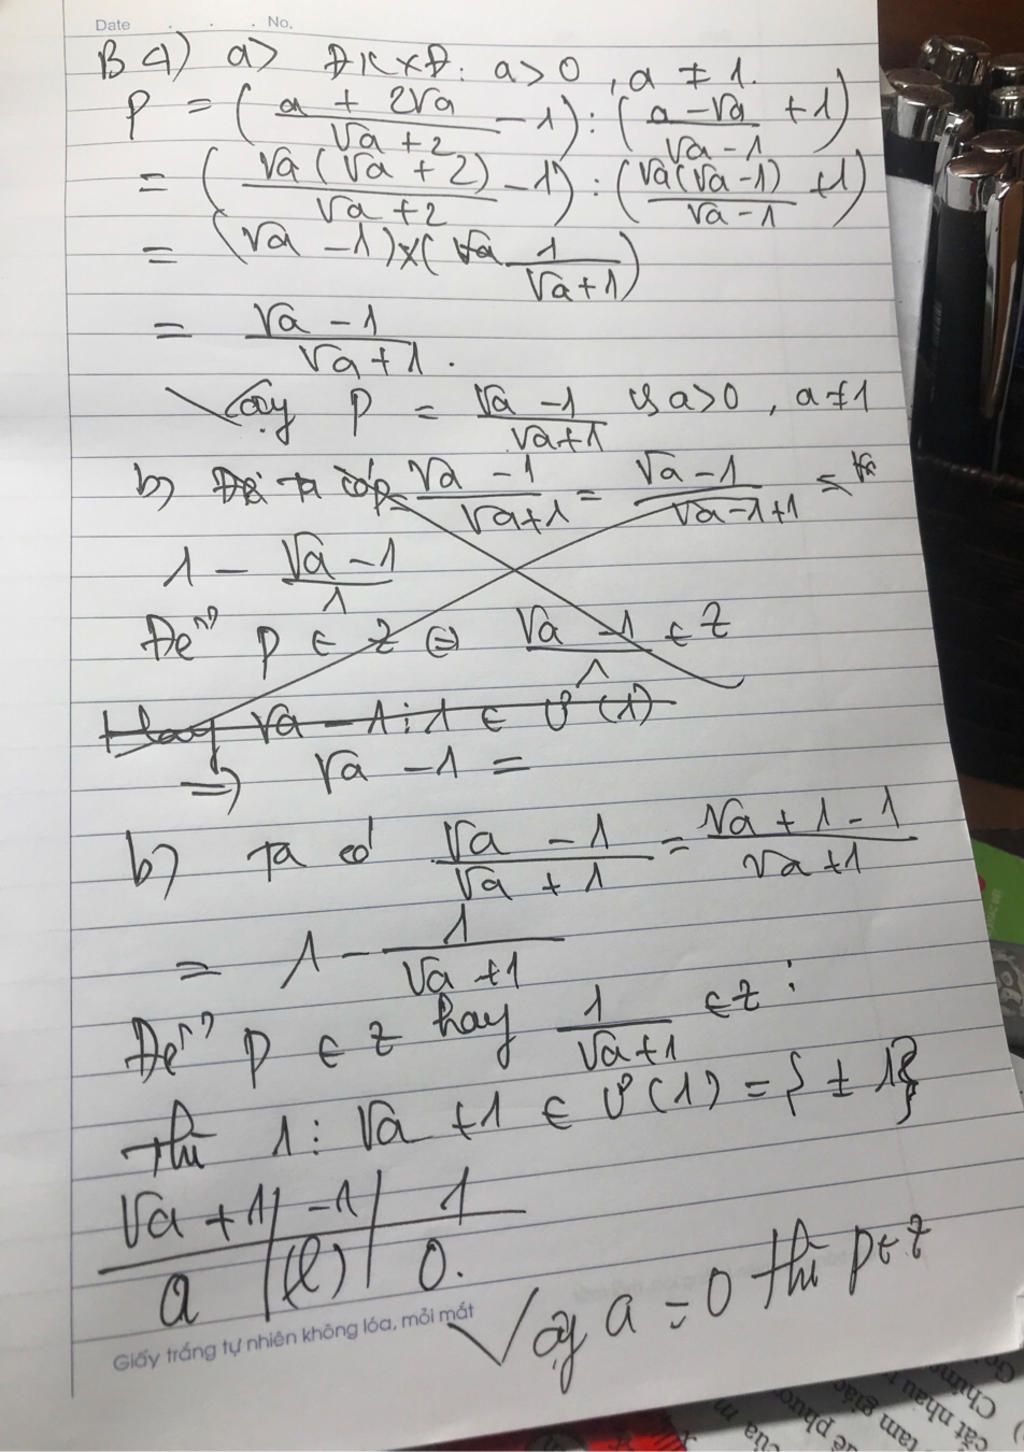 Date . . . No.
B4) a> ĐKXĐ: a > 0, a ≠ 1.
P = (a + 2√a / √a + 2 - 1) : (a - √a / √a - 1 + 1)
= (√a(√a + 2) / √a + 2 - 1) : (√a(√a - 1) / √a - 1 + 1)
= (√a - 1) × (1 / √a + 1)
= √a - 1 / √a + 1 .
Vậy P = √a - 1 / √a + 1 vs a > 0, a ≠ 1
b) Để ta có P = √a - 1 / √a + 1 = √a - 1 / √a - 1 + 1 =
1 - √a - 1 / 1
Để P ∈ Z ⇔ √a - 1 / 1 ∈ Z
Hay √a - 1 : 1 ∈ Ư(1)
⇒ √a - 1 =
b) Ta có √a - 1 / √a + 1 = √a + 1 - 1 / √a + 1
= 1 - 1 / √a + 1
Để P ∈ Z hay 1 / √a + 1 ∈ Z :
thì 1 ⋮ √a + 1 ∈ Ư(1) = {± 1}
√a + 1 | -1 | 1
a | (l) | 0.
Vậy a = 0 thì P ∈ Z
Giấy trắng tự nhiên không lóa, mỏi mắt